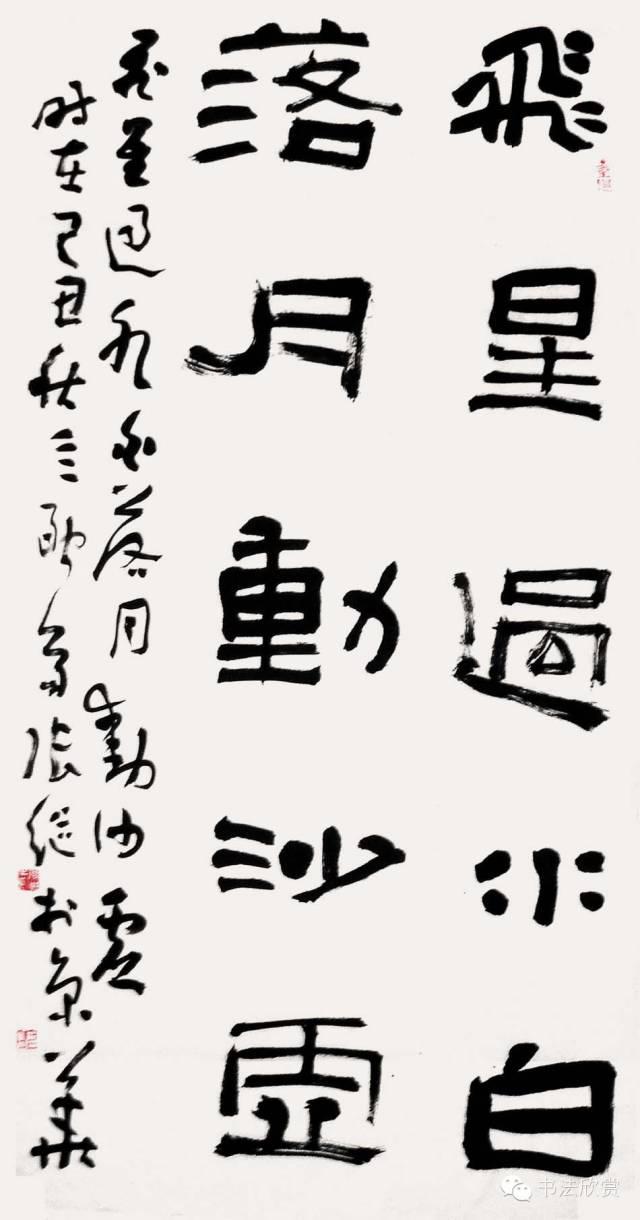 飛星過水白
落月動沙虛
飛星過水白落月動沙虛
時在己丑秋三耻齋張繼於京華
书法欣赏